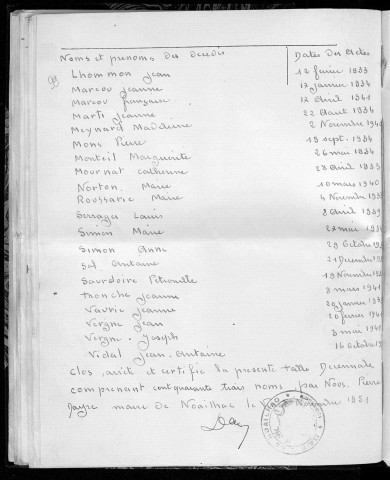 Noms et prenoms des decedés Dates des Actes
Lhommon Jean 12 fevrier 1933
Marcou Jeanne 17 janvier 1934
Marcou françoise 12 Avril 1941
Marti Jeanne 22 Aout 1934
Meynard Madeleine 2 Novembre 194
Mons Pierre 19 sept. 1934
Monteil Marguerite 26 mai 1934
Mournat Catherine Avril 1933
Norton, Marie 10 mars 1940
Roussarie Marie 4 Novembre 193
Serrager Louis 8 Avril 1939
Simon Marie 27 mai 193
Simon Anne 29 Octobre
Sol Antoine 21 Decembre
Sourdoire Petronille 19 Novembre
Tronche Jeanne 8 mars 1941
Vauric Jeanne 20 janvier
Vergne Jean 20 fevrier 194
Vergne Joseph 3 mai
Vidal Jean-Antoine 16 Octobre
Clos, arreté et certifié la presente table Decennale
comprenant cent quarante trois noms, par Nous, Pierre
maire de Noailhac le Novembre 1951